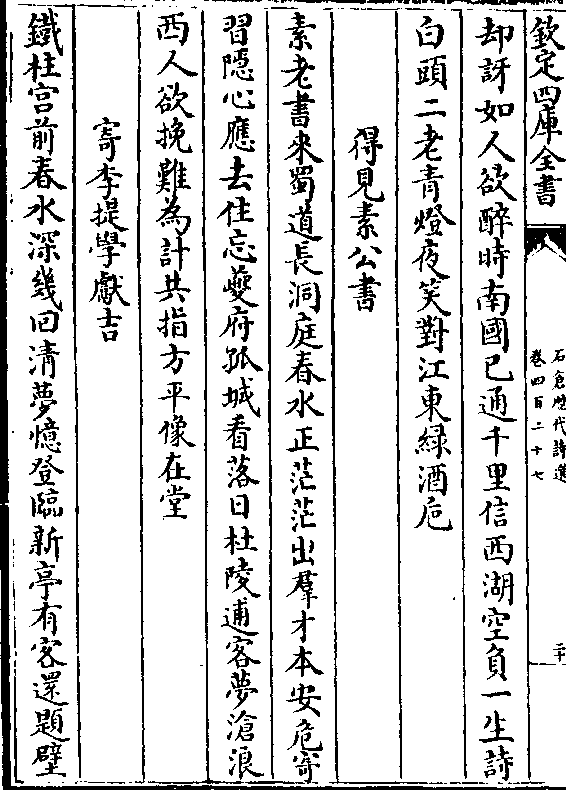 欽定四庫全書
石倉歷代詩選
卷四百二十七
二十
却訝如人欲醉時南國已通千里信西湖空負一生詩
白頭二老青燈夜笑對江東綠酒卮
得見素公書
素老書來蜀道長洞庭春水正茫茫出羣才本安危寄
習隱心應去住忘夔府孤城看落日杜陵逋客夢滄浪
西人欲挽難為計共指方平像在堂
寄李提學獻吉
鐵柱宮前春水深幾回清夢憶登臨新亭有客還題壁